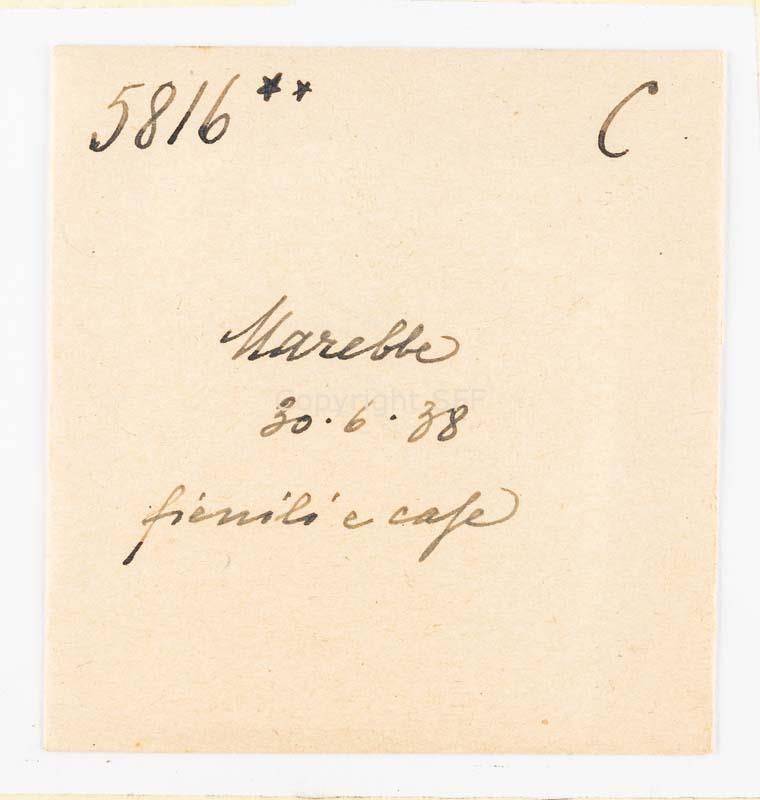 5816** C
Marebbe
Copyright SFF
30.6.38
fienili e case